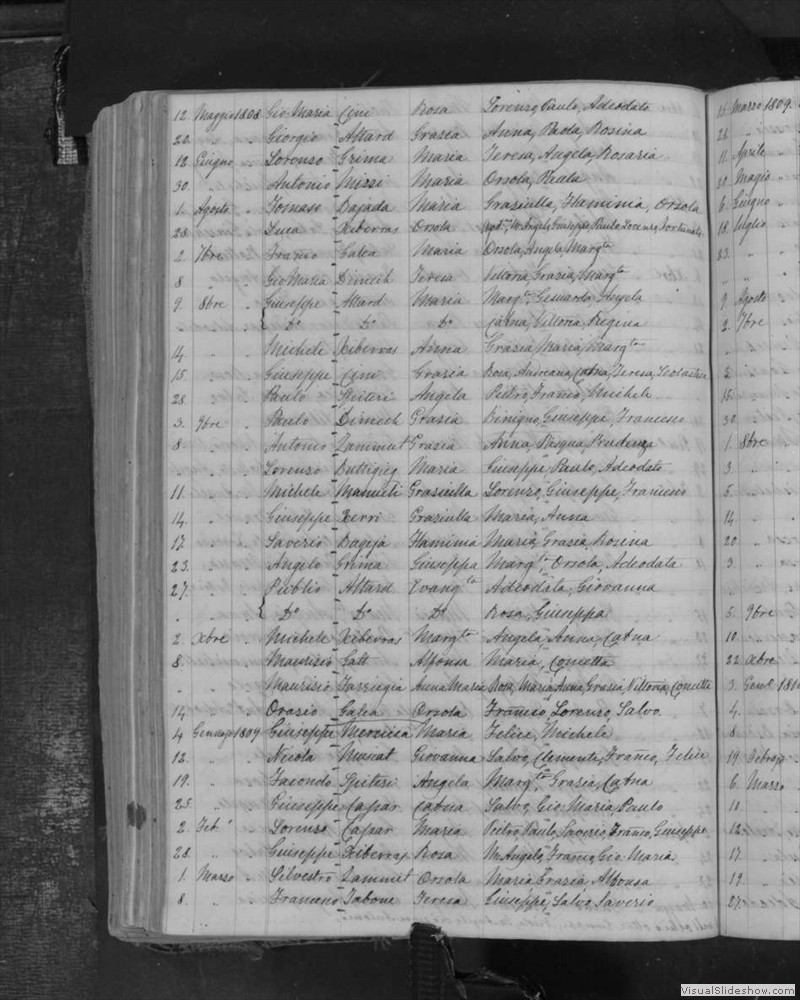 12. Maggio 1808 Gio Maria Cini Rosa Lorenzo, Paulo, Adeodato
20. " " Giorgio Attard Grazia Anna, Paola, Rosina
12 Giugno " Lorenzo Grima Maria Teresa, Angela, Rosaria
30. " Antonio Mizzi Maria Orsola, Paula
1. Agosto " Tomaso Bajada Maria Graziulla, Flaminia, Orsola
28. " " Luca Xiberras Orsola Mr. Angelo, Giuseppe, Paulo, Lorenzo, Fortunato
2. 7bre " Franco Galea Maria Orsola, Angela, Margta
8 " " Gio Maria Dimech Teresa Vittoria, Grazia, Margta
9. 8bre " Giuseppe Attard Maria Margta, Genuarda, Angela
" " { Do Do Do Catna, Vittoria, Regina
14 " " Michele Xiberras Anna Grazia, Maria, Margta
15. " " Giuseppe Cini Grazia Rosa, Catna, Teresa, Scolastica
28. " " Paulo Spiteri Angela Pietro, Franco, Michele
3. 9bre " Paulo Dimech Grazia Benigno, Giuseppe, Francesco
8. " " Antonio Zammut Grazia Anna, Pasqua, Prudenza
" " Lorenzo Buttigieg Maria Giuseppe, Paulo, Adeodato
11. " " Michele Mamuli Graziulla Lorenzo, Giuseppe, Francesco
14. " " Giuseppe Xerri Graziulla Maria, Anna
17 " " Saverio Bageja Flaminia Maria, Grazia, Rosina
23. " " Angelo Grima Giuseppa Margta, Orsola, Adeodata
27. " " Publio Attard Evangta Adeodata, Giovanna
" " { Do Do Do Rosa, Giuseppa
2. Xbre " Michele Xiberras Margta Angela, Anna, Catna
8. " " Maurizio Gatt Alfonsa Maria, Concetta
" " Maurizio Farrugia Anna Maria Rosa, Maria, Anna, Grazia, Vittoria, Concetta
14 " " Orazio Galea Orsola Franco, Lorenzo, Salvo.
4 Gennajo 1809 Giuseppe Mercieca Maria Felice, Michele
12. " " Nicola Muscat Giovanna Salvo, Clemente, Franco, Felice
19. " " Facondo Spiteri Angela Margta, Grazia, Catna
25. " " Giuseppe Caspar Catna Salvo, Gio Maria, Paulo
2. Feb. " Lorenzo Caspar Maria Pietro Paulo, Saverio, Franco, Giuseppe
28. " " Giuseppe Xiberras Rosa Mr Angelo, Franco, Gio Maria
1. Marzo " Silvestro Zammit Orsola Maria Grazia, Alfonsa
8. " " Francesco Tabone Teresa Giuseppe, Salvo, Saverio
15 Marzo 1809.
28 "
11. Aprile "
20. Magio "
6. Giugno "
18. Luglio "
23. "
9. Agosto
2. 7bre
2 "
15. "
30. "
1. 8bre
3 "
5. "
14 "
20. "
3. "
5. 9bre
10. "
22. Xbre
3. Gen. 1810
4. "
8. "
19. Febrajo
6. Marzo
10. "
12. "
17. "
19. "
27. "
VisualSlideshow.com